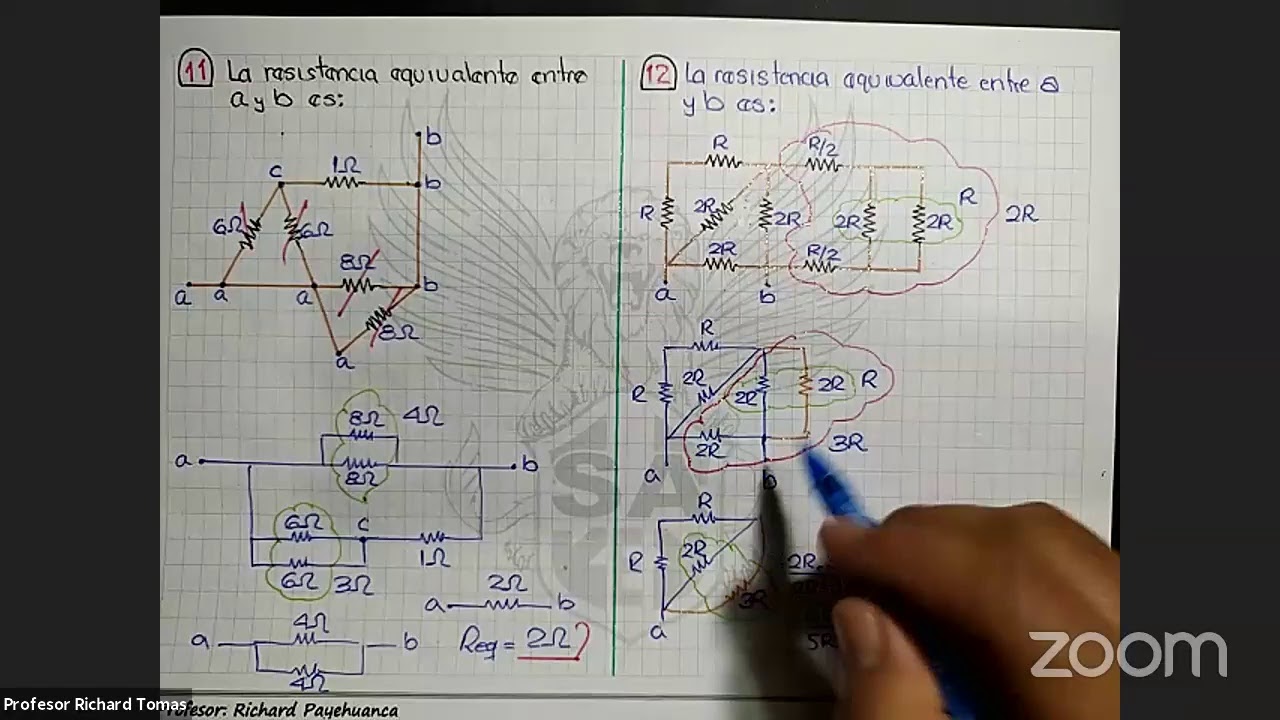 11 La resistencia equivalente entre
a y b es:
b
c
1Ω
b
6Ω
6Ω
8Ω
a
a
a
b
8Ω
a
8Ω
4Ω
a
b
8Ω
6Ω
c
6Ω
3Ω
1Ω
2Ω
a
b
4Ω
a
b
4Ω
Req = 2Ω
12 La resistencia equivalente entre a
y b es:
R
R/2
R
2R
2R
2R
2R
R
2R
2R
R/2
a
b
R
R
2R
2R
2R
R
2R
3R
a
b
R
R
2R
3R
a
2R
5R
SA
zoom
Profesor Richard Tomas
Profesor: Richard Payehuanca